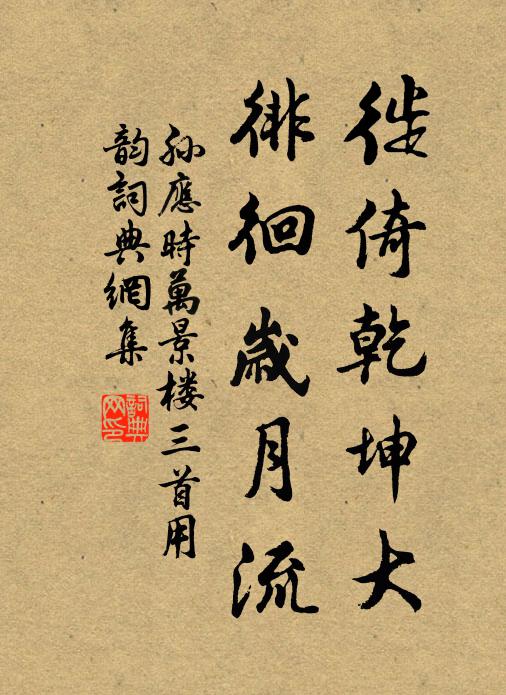 徙倚乾坤大
徘徊歲月流
孫應時萬景楼三首用
韵詞典網集
詞典
网印